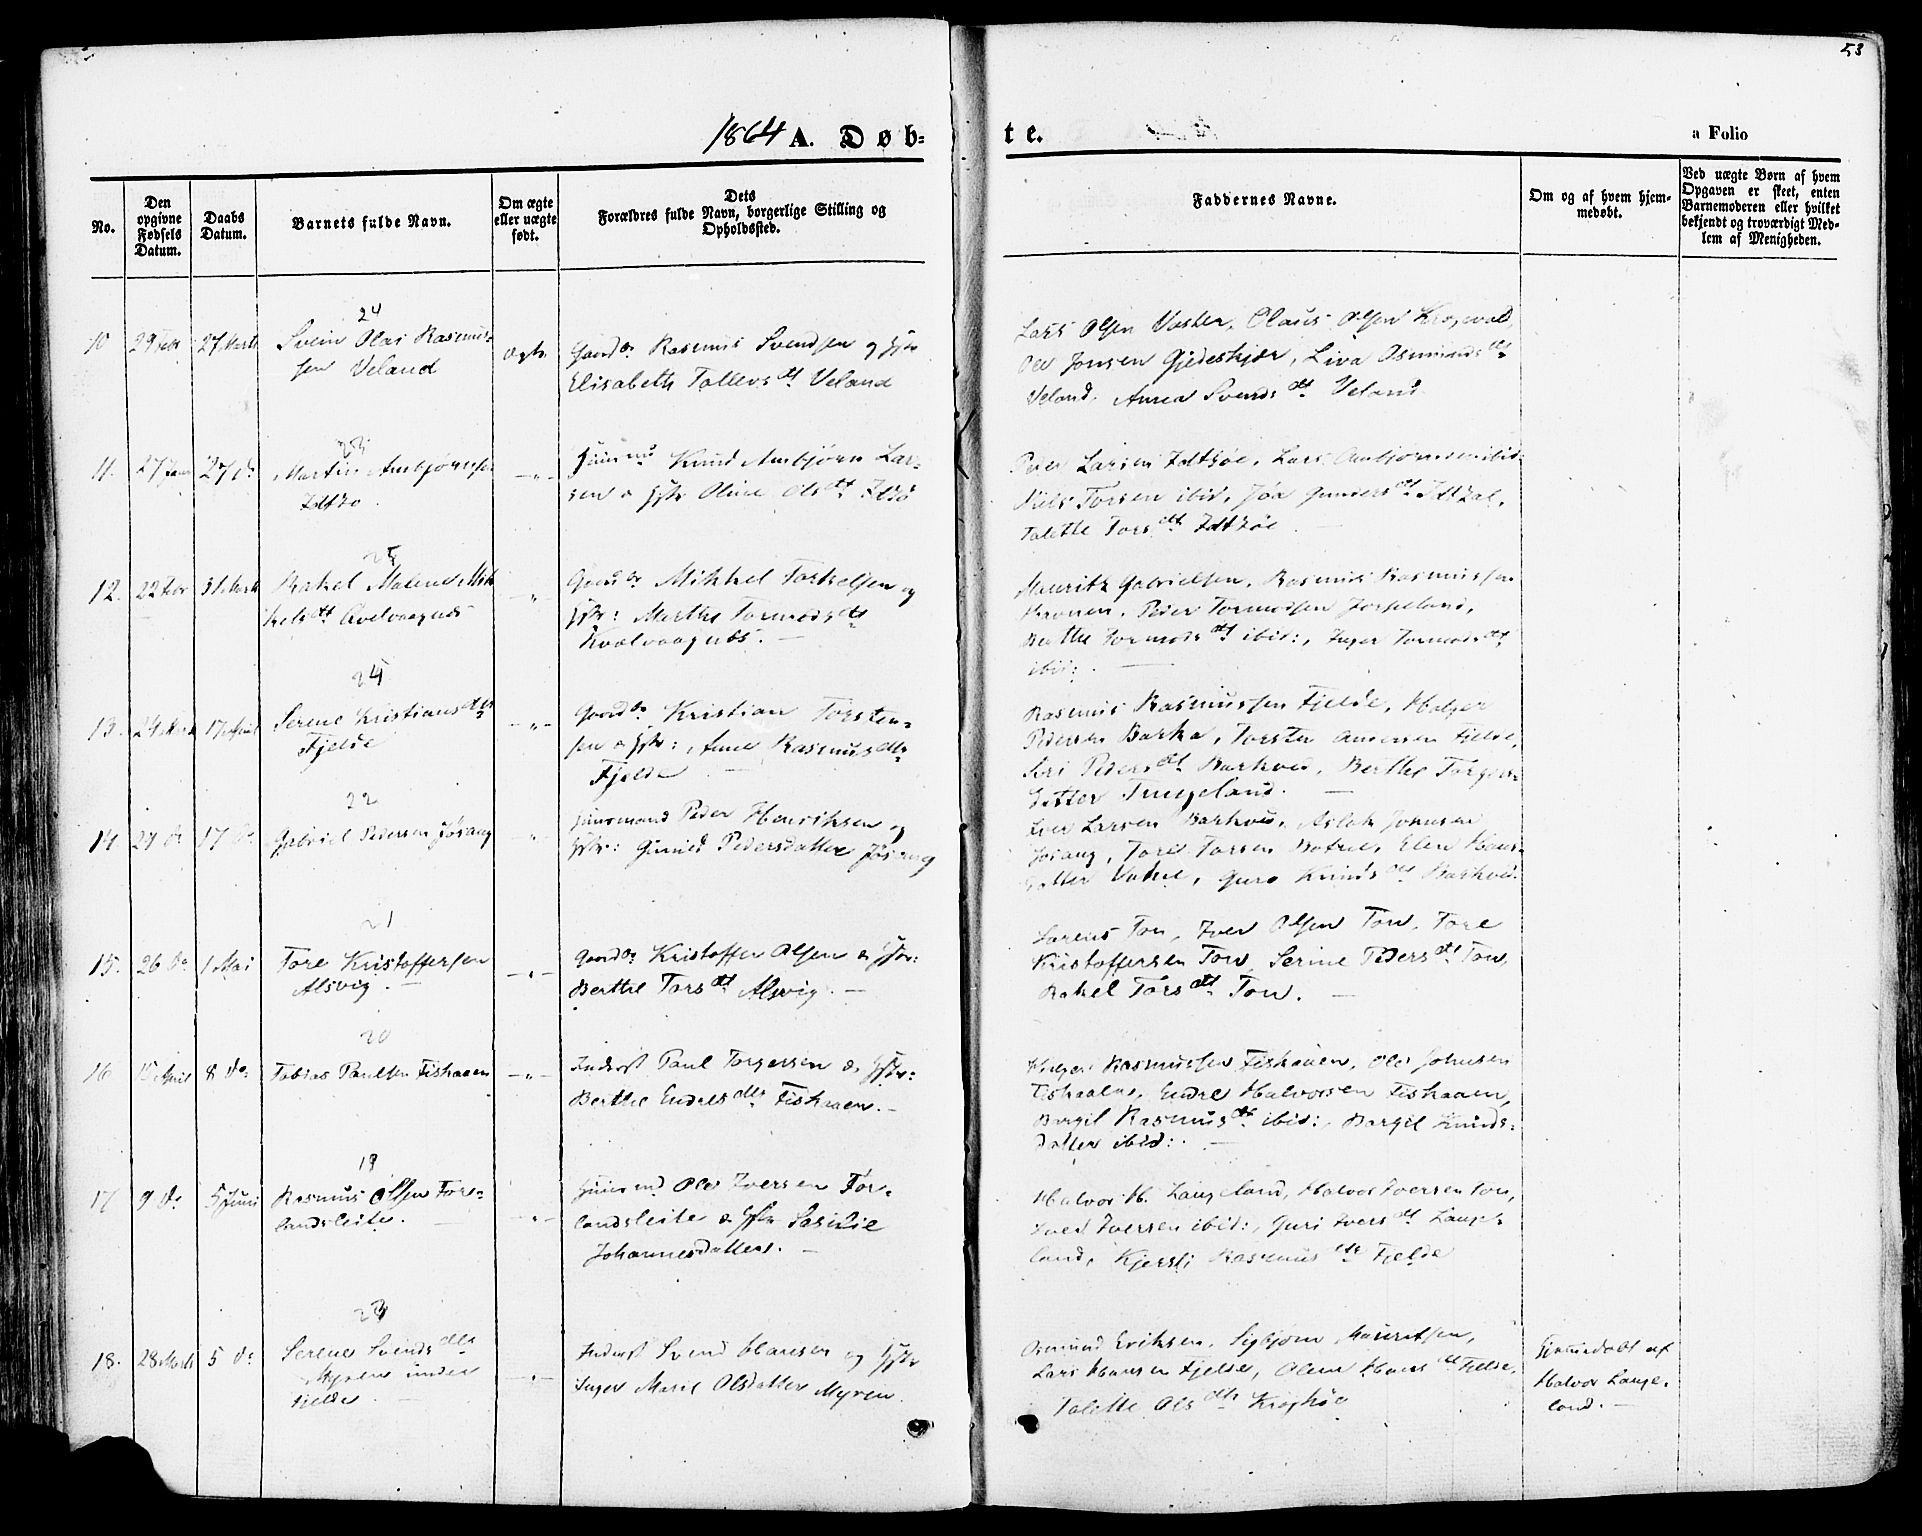 53
1864 A. Døb-
te.
a Folio
No.
Den opgivne Fødsels Datum.
Daabs Datum.
Barnets fulde Navn.
Om ægte eller uægte født.
Dets Forældres fulde Navn, borgerlige Stilling og Opholdssted.
Faddernes Navne.
Om og af hvem hjem-
medøbt.
Ved uægte Børn af hvem
Opgaven er skeet, enten
Barnemoderen eller hvilket
bekjendt og troværdigt Med-
lem af Menigheden.
24
10 29 Febr 27 Marts Svein Olai Rasmus-
sen Veland
ægte
Gaardbr Rasmus Svendsen og Hstr
Elisabeth Tollevs dt Veland
Lars Olsen Vaster, Olaus Olsen
Ole Jonsen Gjedeskjær, Liva Osmunds dt
Veland, Anna Svends dt Veland
11. 27 Jan 27 do Martin Ambjørnsen
Huusmd Knud Ambjørn Lar-
sen & Hstr Oline Ols dt
Peder Larsen Lars Ambjørnsen ibid:
Niels Torsen ibid, Gunders dt
Talette Tors dt
25
12. 22 31 Marts Rakel Malene Mik
kels dt Qvelvaagnæs
Gaardbr Mikkel Torkelsen og
Hstr: Marthe Tormods dt
Kvalvaagnæs.
Mauritz Gabrielsen, Rasmus Rasmussen
Peder Tormodsen Jørpeland,
Berthe Tormods dt ibid:, Inger Tormods dt
ibid:
24
13. 24 Marts 17 April Serene Kristians dtr
Fjelde
Gaardbr Kristian Torsten-
sen & Hstr: Anne Rasmus dtr
Fjelde
Rasmus Rasmussen Fjelde, Holger
Pedersen Barka, Torsten Andersen Fjelde,
Siri Peders dt Barkved, Berthe Torgers
datter Tungeland.
22
14. 27 do 17 do Gabriel Pedersen Jøsang
Huusmand Peder Henriksen og
Hstr: Gunild Pedersdatter Jøsang
Iver Larsen Barkved, Aslak Johnsen
Jøsang, Tore Torsen Elen Hans-
datter Guro Knuds dt Barkved.
21
15. 26 do 1 Mai Tore Kristoffersen
Alsvig.
Gaardbr Kristoffer Olsen & Hstr:
Berthe Tors dt Alsvig.
Lorens Tou, Iver Olsen Tou, Tore
Kristoffersen Tou, Serine Peders dt Tou,
Rakel Tors dt Tou.
20
16 15 April 8 do: Tobias Paulsen Fiskaaen
Inderst Paul Torgersen & Hstr:
Berthe Endres dtr Fiskaaen.
Holger Rasmussen Fiskaaen, Ole Johnsen
Fiskaaen, Endre Halvorsen Fiskaaen,
Bergit Rasmus dt ibid:, Bergit Knuds-
datter ibid:.
19
17 9 do 5 Juni Rasmus Olsen Fore-
landsleite.
Huusmd Ole Iversen For-
landsleite & Hstr
Johannesdatter.
Halvor H. Langeland, Halvor Iversen Tou,
Iversen ibid:, Guri Ivers dt Lange-
land, Kjersti Rasmus dtr Fjelde
23
18. 28 Marts 5 do Serene Svends dtr
Myren under
Fjelde
Inderst Svend Clausen og Hstr
Inger Marie Olsdatter Myren.
Osmund Eriksen, Sigbjørn Mauritsen,
Lars Hansen Fjelde, Olene Hans dt Fjelde,
Talette Ols dtr Krogkøe
Hjemmedøbt af
Halvor Lange-
land.